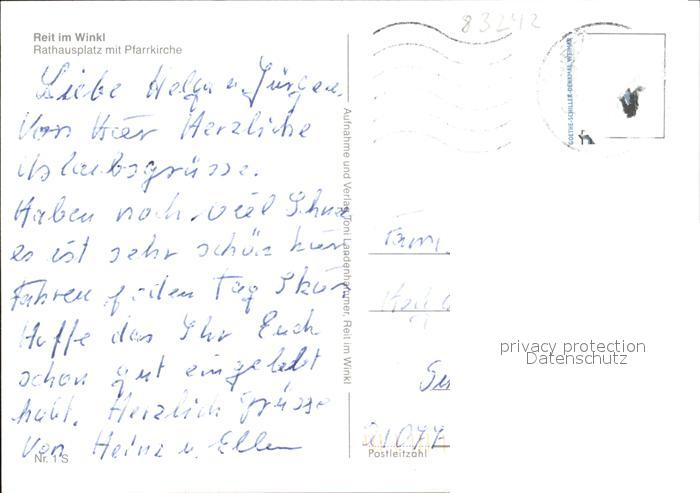 83242
Reit im Winkl
Rathausplatz mit Pfarrkirche
Liebe Helga u. Jürgen.
Von Hier Herzliche
Urlaubsgrüsse.
Haben noch viel Schnee
es ist sehr schön hier
Fahren jeden Tag Ski
Hoffe das Ihr Euch
schon gut eingelebt
habt. Herzlich grüsse
Von Heinz u. Ellen
Nr. 1 S
Aufnahme und Verlag Toni Lindenhammer, Reit im Winkl
GOETHE-SCHILLER-DENKMAL WEIMAR
Fam.
privacy protection
Datenschutz
21077
Postleitzahl